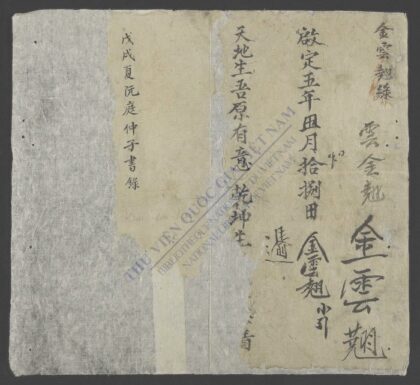 金雲翹錄
雲金翹
金雲翹
啟定五年四月拾捌日
金雲翹小引
天地生吾原有意乾坤生
戊戌夏阮庭仲子書錄
THƯ VIỆN QUỐC GIA VIỆT NAM
BIBLIOTHÈQUE NATIONALE DU VIETNAM
NATIONAL LIBRARY OF VIETNAM